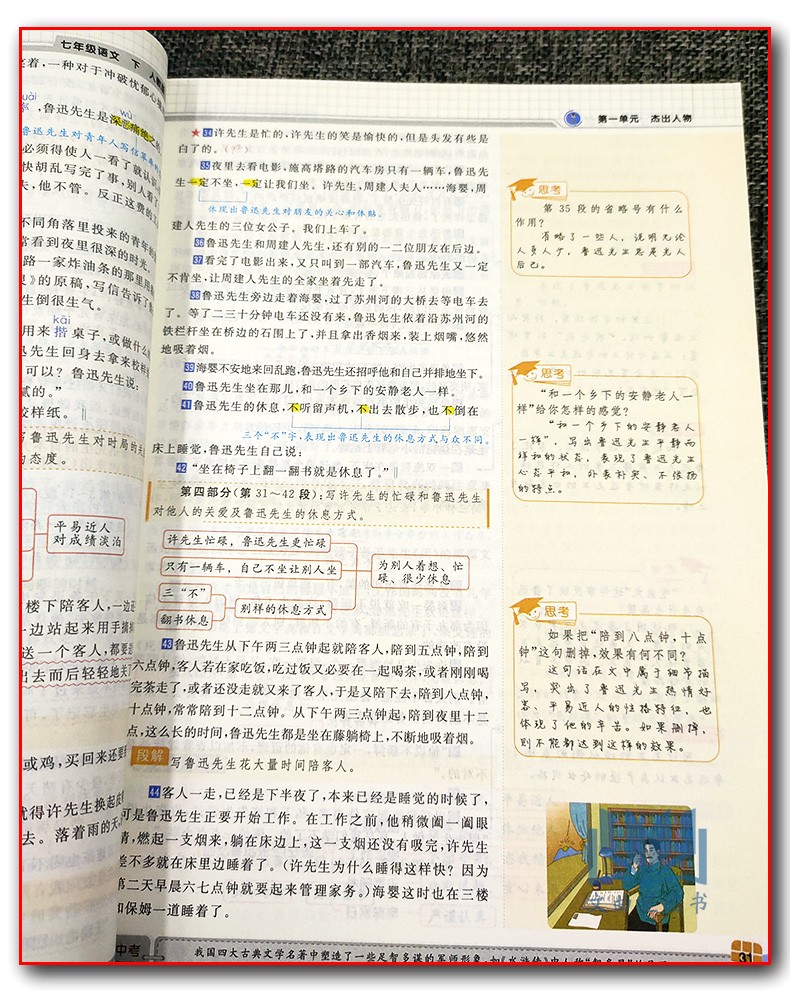 七年级语文 下 人
着，一种对于冲破忧郁心
，鲁迅先生是深恶痛绝
wù
鲁迅先生对青年人写信草率
必须得使人一看了就认
快胡乱写完了事，别人看了
，他不管。反正这费的
不同角落里投来的青年的
常看到夜里很深的时光。
路一家炸油条的那里用
》的原稿，写信告诉了
生倒很生气。
kāi
用来揩桌子，或做什么
迅先生回身去拿来校样
可以？鲁迅先生说：
腻的。”
校样纸。
鲁迅先生对时局的关
态度。
平易近人
对成绩淡泊
楼下陪客人，一边
一边站起来用手摘掉
送一个客人，都要
出去而后轻轻地关
或鸡，买回来还要
就得许先生换起皮
去。落着雨的天
中考
第一单元 杰出人物
★34许先生是忙的，许先生的笑是愉快的，但是头发有些是
白了的。
35夜里去看电影，施高塔路的汽车房只有一辆车，鲁迅先
生一定不坐，一定让我们坐。许先生，周建人夫人……海婴，周
体现出鲁迅先生对朋友的关心和体贴。
建人先生的三位女公子。我们上车了。
36鲁迅先生和周建人先生，还有别的一二位朋友在后边。
37看完了电影出来，又只叫到一部汽车，鲁迅先生又一定
不肯坐，让周建人先生的全家坐着先走了。
38鲁迅先生旁边走着海婴，过了苏州河的大桥去等电车去
了。等了二三十分钟电车还没有来，鲁迅先生依着沿苏州河的
铁栏杆坐在桥边的石围上了，并且拿出香烟来，装上烟嘴，悠然
地吸着烟。
39海婴不安地来回乱跑，鲁迅先生还招呼他和自己并排地坐下。
40鲁迅先生坐在那儿，和一个乡下的安静老人一样。
41鲁迅先生的休息，不听留声机，不出去散步，也不倒在
三个“不”字，表现出鲁迅先生的休息方式与众不同。
床上睡觉，鲁迅先生自己说：
42“坐在椅子上翻一翻书就是休息了。”
第四部分(第31～42段)：写许先生的忙碌和鲁迅先生
对他人的关爱及鲁迅先生的休息方式。
许先生忙碌，鲁迅先生更忙碌
只有一辆车，自己不坐让别人坐
三“不”
翻书休息
别样的休息方式
为别人着想、忙
碌、很少休息
43鲁迅先生从下午两三点钟起就陪客人，陪到五点钟，陪到
六点钟，客人若在家吃饭，吃过饭又必要在一起喝茶，或者刚刚喝
完茶走了，或者还没走就又来了客人，于是又陪下去，陪到八点钟，
十点钟，常常陪到十二点钟。从下午两三点钟起，陪到夜里十二
点，这么长的时间，鲁迅先生都是坐在藤躺椅上，不断地吸着烟。
段解 写鲁迅先生花大量时间陪客人。
44客人一走，已经是下半夜了，本来已经是睡觉的时候了，
可是鲁迅先生正要开始工作。在工作之前，他稍微阖一阖眼
睛，燃起一支烟来，躺在床边上，这一支烟还没有吸完，许先生
差不多就在床里边睡着了。(许先生为什么睡得这样快？因为
第二天早晨六七点钟就要起来管理家务。)海婴这时也在三楼
和保姆一道睡着了。
思考
第35段的省略号有什么
作用？
省略了一些人，说明无论
人多人少，鲁迅先生总是先人
后己。
思考
“和一个乡下的安静老人一
样”给你怎样的感觉？
“和一个乡下的安静老人
一样”，写出鲁迅先生平静而
祥和的状态，表现了鲁迅先生
心态平和、外表朴实、不张扬
的特点。
思考
如果把“陪到八点钟，十点
钟”这句删掉，效果有何不同？
这句话在文中属于细节描
写，突出了鲁迅先生热情好
客、平易近人的性格特征，也
体现了他的辛苦。如果删掉，
则不能都达到这样的效果。
书
我国四大古典文学名著中塑造了一些足智多谋的军师形象，如《水浒传》中人称“智多星”
31